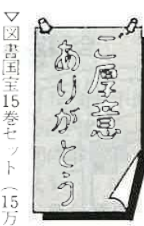 ご厚意
ありがとう
▽図書国宝15巻セット（15万